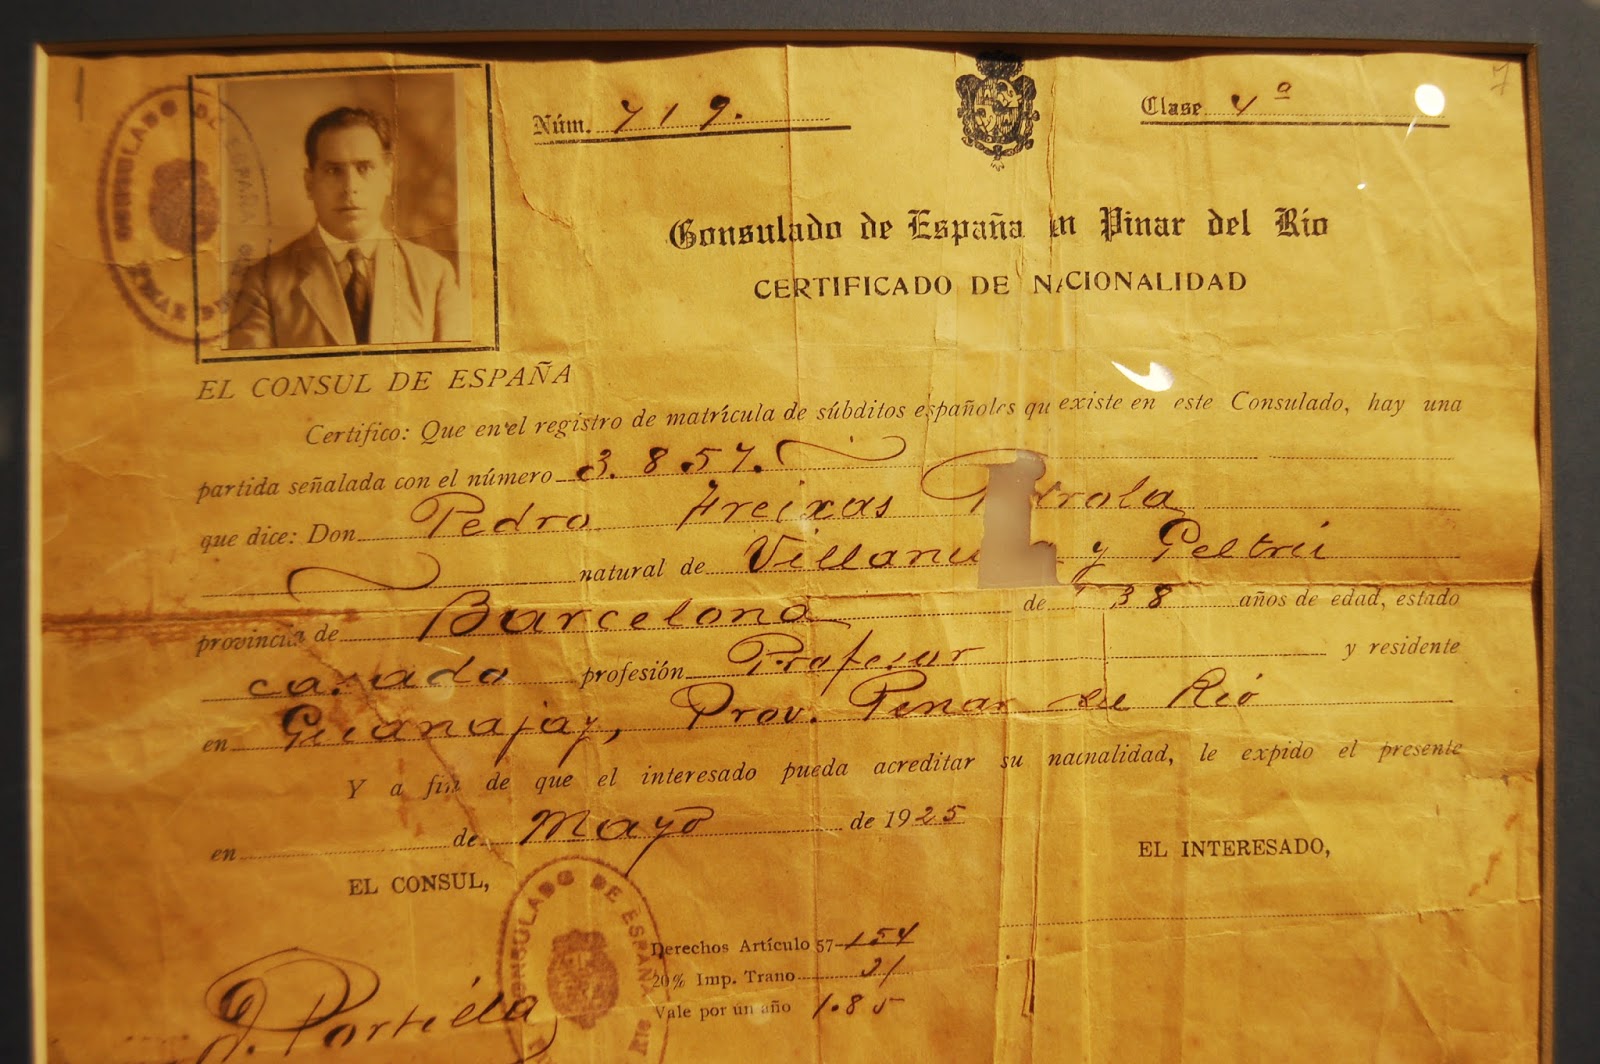 CONSULADO DE ESPAÑA
Núm. 719.
Clase 4ª
7
Consulado de España en Pinar del Río
CERTIFICADO DE NACIONALIDAD
EL CONSUL DE ESPAÑA
Certifico: Que en el registro de matrícula de súbditos españoles que existe en este Consulado, hay una
partida señalada con el número 3.857.
que dice: Don Pedro Freixas P trola
natural de Villanu y Geltrú
provincia de Barcelona de 38 años de edad, estado
casado profesión Profesor y residente
en Guanajay, Prov. Pinar del Rió
Y a fin de que el interesado pueda acreditar su nacnalidad, le expido el presente
en de Mayo de 1925
EL CONSUL,
EL INTERESADO,
CONSULADO DE ESPAÑA
Derechos Artículo 57- 1.54
20% Imp. Trano 31
Vale por un año 1.85
J. Portilla